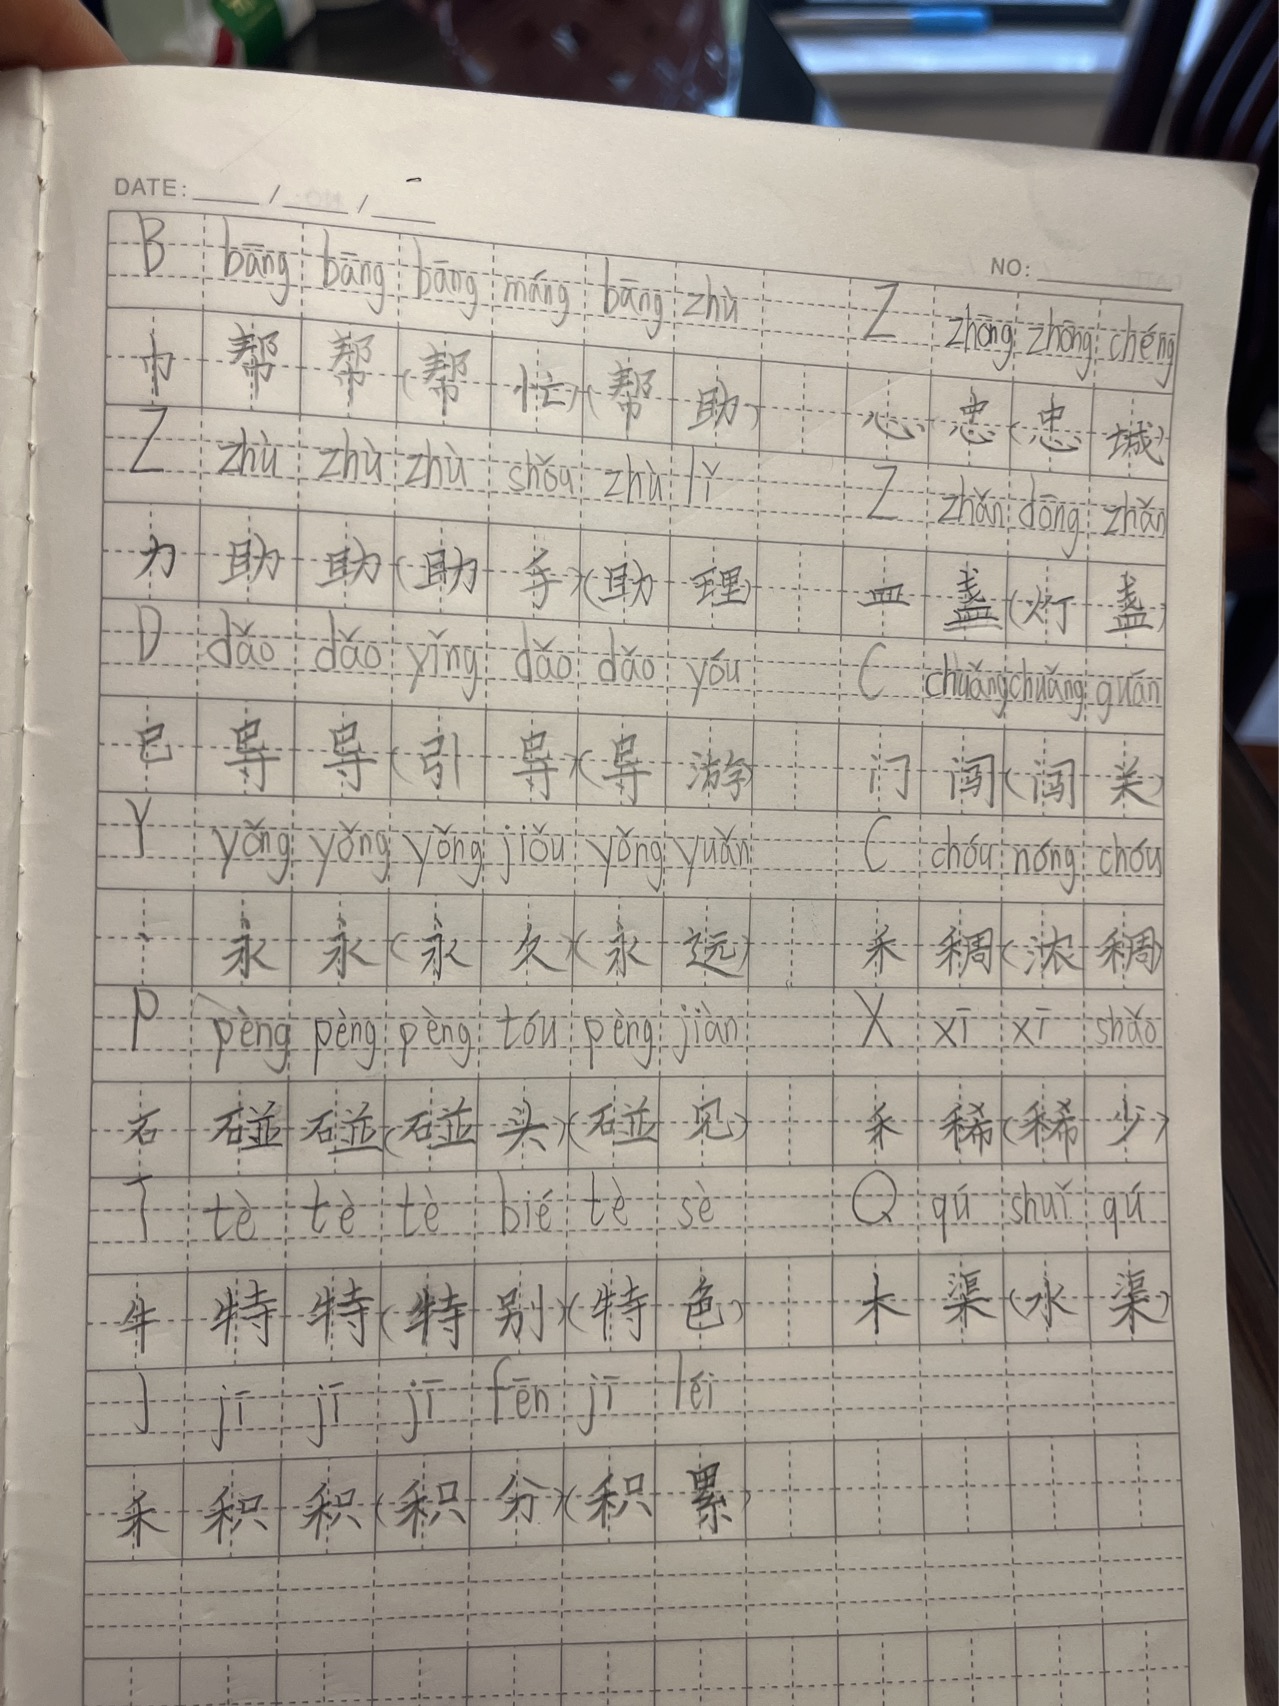 DATE: / /
NO:
B bāng bāng bāng máng bāng zhù Z zhōng zhōng chéng
巾 帮 帮 (帮 忙) (帮 助) 心 忠 (忠 城)
Z zhù zhù zhù shǒu zhù lǐ Z zhǎn dōng zhǎn
力 助 助 (助 手) (助 理) 皿 盏 (灯 盏)
D dǎo dǎo yǐng dǎo dǎo yóu C chuǎng chuǎng guān
巳 导 导 (引 导) (导 游) 门 闯 (闯 关)
Y yǒng yǒng yǒng jiǒu yǒng yuǎn C chóu nóng chóu
丶 永 永 (永 久) (永 远) 禾 稠 (浓 稠)
P pèng pèng pèng tóu pèng jiàn X xī xī shǎo
石 碰 碰 (碰 头) (碰 见) 禾 稀 (稀 少)
T tè tè tè bié tè sè Q qú shuǐ qú
牛 特 特 (特 别) (特 色) 木 渠 (水 渠)
J jī jī jī fēn jī léi
禾 积 积 (积 分) (积 累)